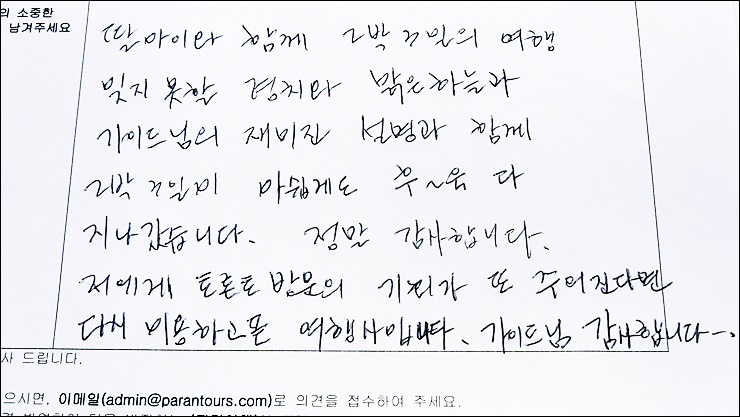 의 소중한
남겨주세요
딸아이와 함께 2박3일의 여행
잊지 못할 경치와 맑은하늘과
가이드님의 재미진 설명과 함께
2박 3일이 아쉽게도 후~욱 다
지나갔습니다. 정말 감사합니다.
저에게 토론토 방문의 기회가 또 주어진다면
다시 이용하고픈 여행사입니다. 가이드님 감사합니다~.
사 드립니다.
으시면, 이메일(admin@parantours.com)로 의견을 접수하여 주세요.